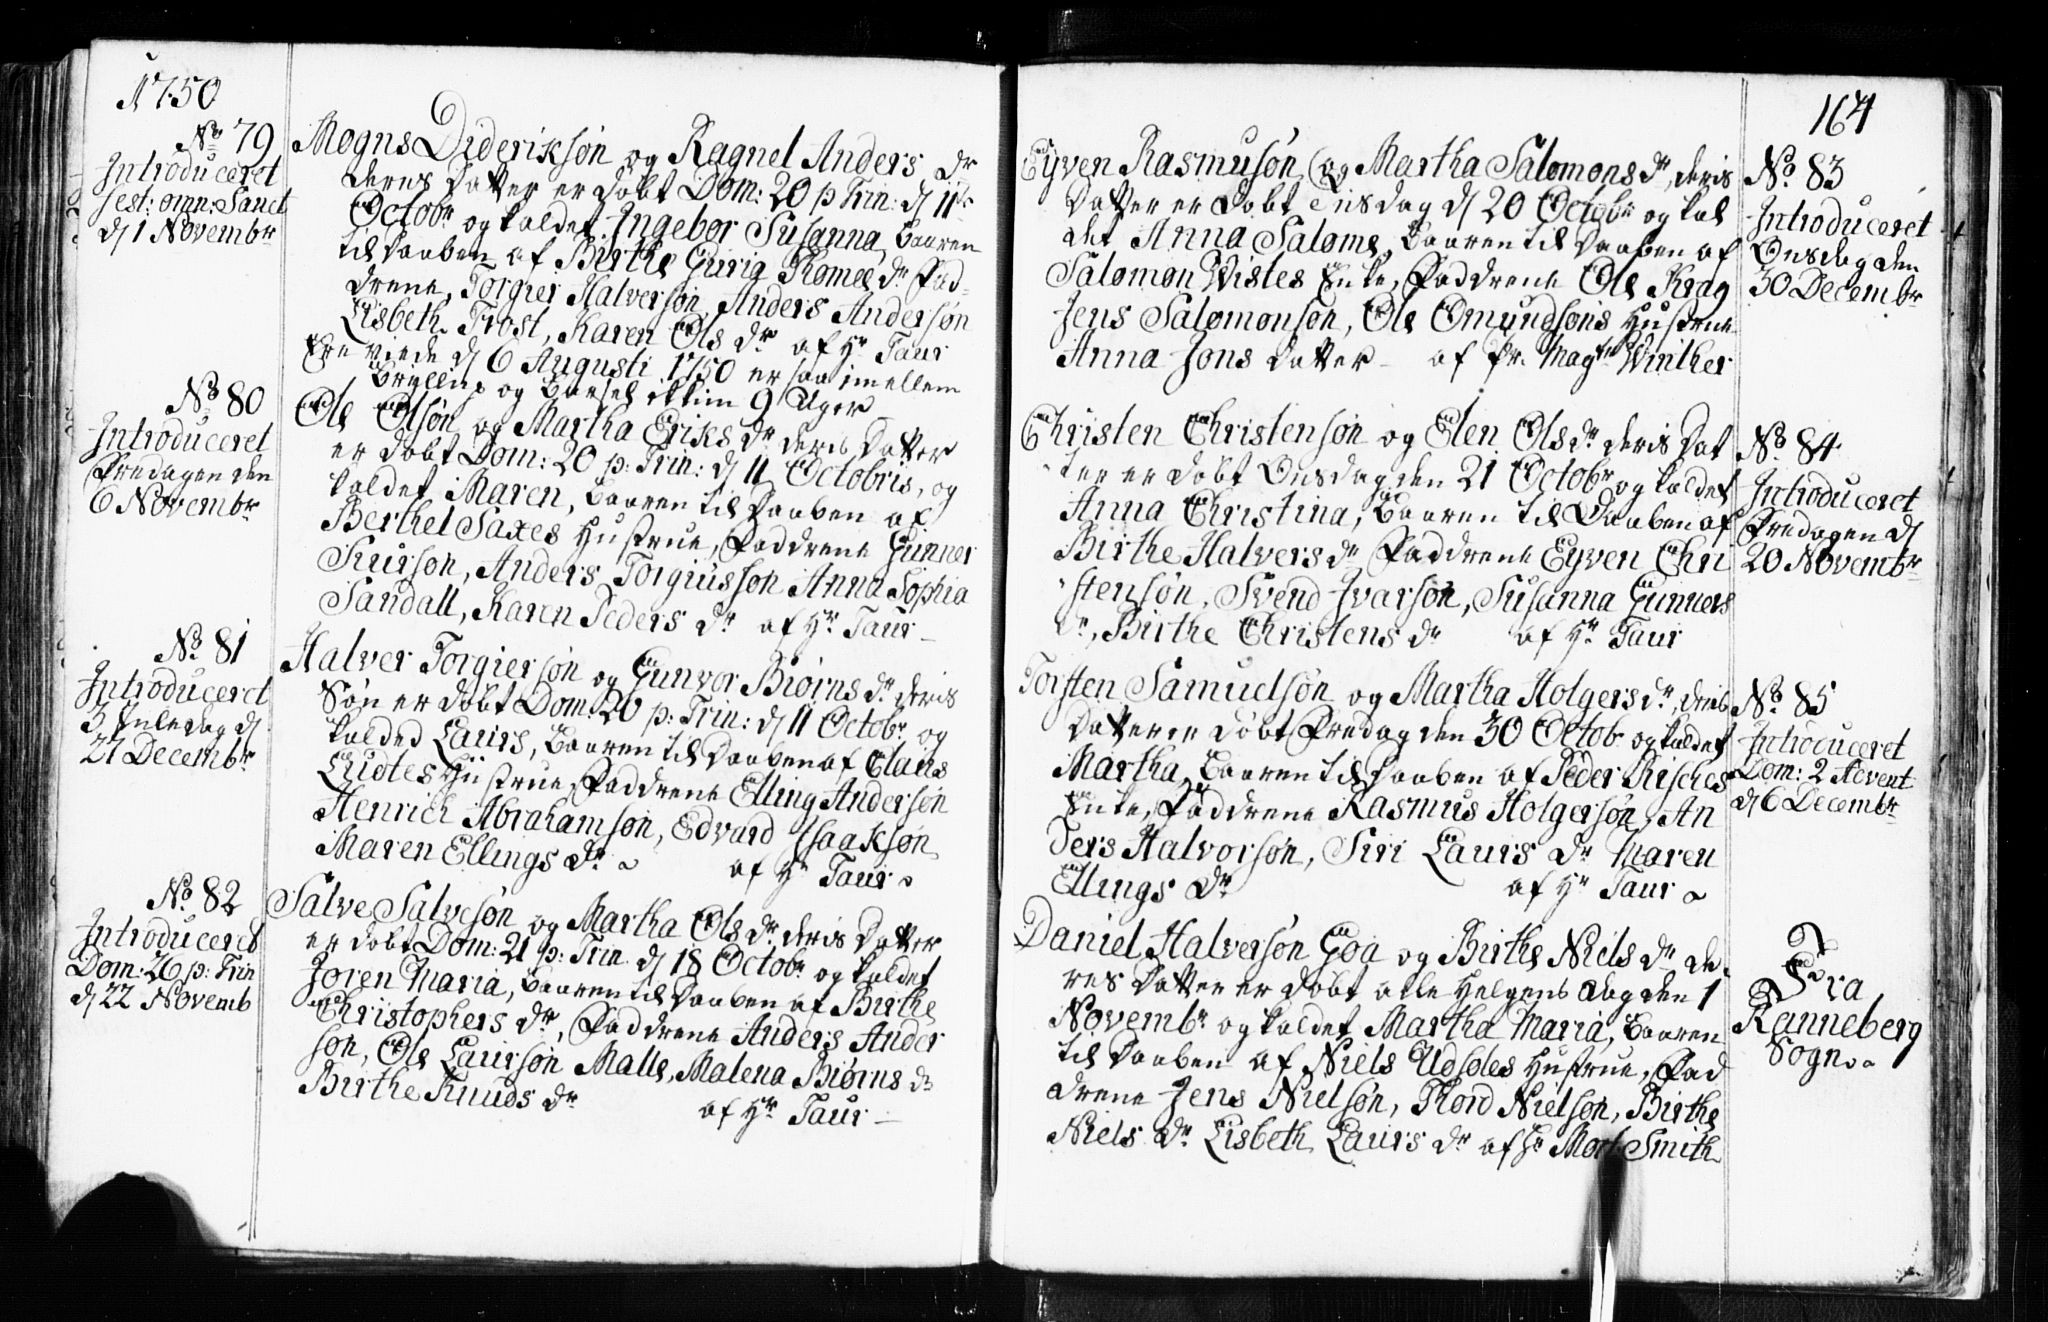 1750
No 79
Introduceret
fest: omn: Sanct
dj 1 Novembr
Mogns Dideriksøn og Ragnel Anders dr
deres Datter er døbt Dom: 20 p Trin: dj 11te
Octobr og kaldet Ingebor Susanna, baaren
til daaben af Birthe Guria Romee dr Fad-
drene, Torgier Halversøn, Anders Andersøn
Lisbeth Trost, Karen Ols dr af Hr Taur
Ere viede dj 6 Augusti 1750 er saa imellem
Brÿllup og Barsel ikkun 9 Uger
No 80
Introduceret
Fredagen den
6 Novembr
Ole Olsøn og Martha Eriks dr deris Datter
er døbt Dom: 20 p: Trin: dj 11 Octobris, og
kaldet Maren, baaren til Daaben af
Berthel Saxes Hustrue, Faddrene Gunner
Siursøn, Anders Torgiussøn Anna Sophia
Sandall, Karen Peders dr af Hr Taur
No 81
Introduceret
3 Juledag dj
27 Decembr
Halver Torgiersøn og Gunvor Biørns dr deris
Søn er døbt Dom: 20 p: Trin: dj 11 Octobr og
kalded Laurs, baaren til Daaben af Claus
Ludtes Hustrue, Faddrene Elling Andersøn
Henrich Abrahamsøn, Edvard Isaaksøn
Maren Ellings dr af Hr Taur
No 82
Introduceret
Dom: 26 p: Trin
dj 22 Novemb
Salve Salvesøn og Martha Ols dr deris Datter
er døbt Dom: 21 p: Trin dj 18 Octobr og kaldet
Joren Maria, baaren til Daaben af Birthe
Christophers dr, Faddrene Anders Ander
søn, Ole Laursøn Malle, Malena Biørns dr
Birthe Knuds dr af Hr Taur
164
Eyven Rasmusøn og Martha Salomons dr, deris
Datter er døbt Tiisdag dj 20 Octobr og kal
det Anna Salome, baaren til Daaben af
Salomon Wistes Enke, Faddrene Ole Krag
Jens Salomonsøn, Ole Omundsøns Hustrue
Anna Jons Datter af pr. Magr Winther
No 83
Introduceret
Onsdag den
30 Decembr
Christen Christensøn og Elen Ols dr deris Dat
ter er døbt Onsdag den 21 Octobr og kaldet
Anna Christina, baaren til Daaben af
Birthe Halvers dr Faddrene Eyven Chri
stensøn, Svend Ivarsøn, Susanna Gunners
dr, Birthe Christens dr af Hr Taur
No 84
Introduceret
Fredagen dj
20 Novembr
Torsten Samuelsøn og Martha Holgers dr, deris
Datter er døbt Fredag den 30 Octob og kaldet
Martha, baaren til Daaben af Peder Risches
Enke, Faddrene Rasmus Holgersøn, An
ders Halvorsøn, Siri Laurs dr Maren
Ellings dr af Hr Taur
No 85
Introduceret
Dom: 2 Advent
dj 6 Decembr
Daniel Halversøn Goa og Birthe Niels dr de
res Datter er døbt alle Helgens dag den 1
Novembr og kaldet Martha Maria, baaren
til Daaben af Niels Udsoles Hustrue, Fad
drene Jens Nielsøn, Thord Nielsøn, Birthe
Niels dr Lisbeth Laurs dr af Hr Mort Smith
Fra
Ranneberg
Sogn